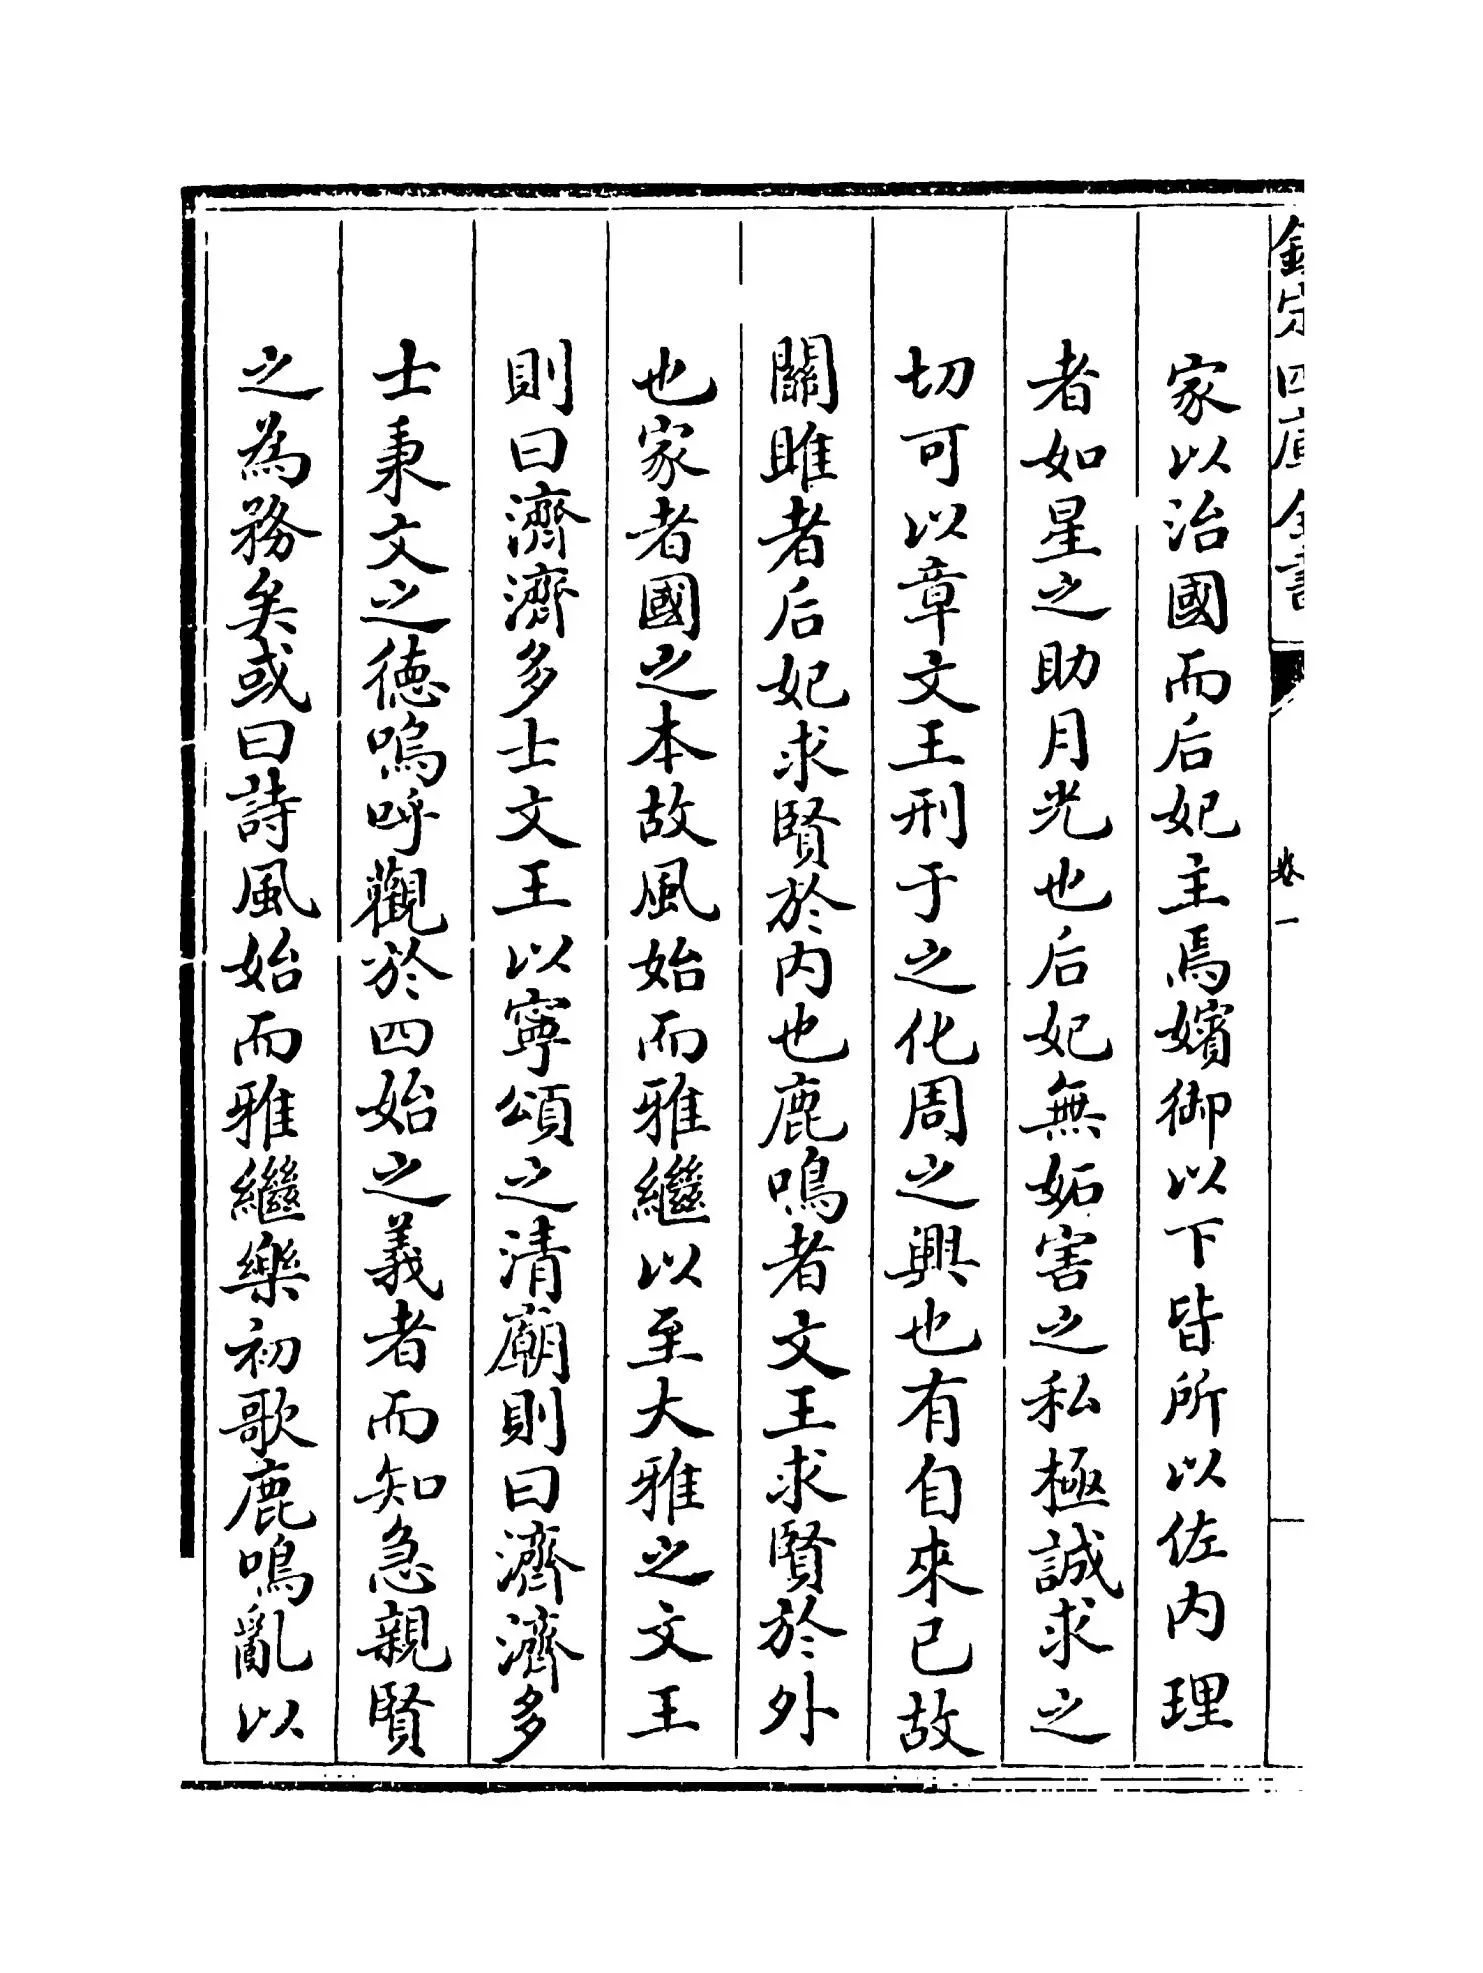 欽定四庫全書
卷一
家以治國而后妃主焉嬪御以下皆所以佐内理
者如星之助月光也后妃無妬害之私極誠求之
切可以章文王刑于之化周之興也有自來已故
關雎者后妃求賢於内也鹿鳴者文王求賢於外
也家者國之本故風始而雅繼以至大雅之文王
則曰濟濟多士文王以寧頌之清廟則曰濟濟多
士秉文之德嗚呼觀於四始之義者而知急親賢
之為務矣或曰詩風始而雅繼樂初歌鹿鳴亂以